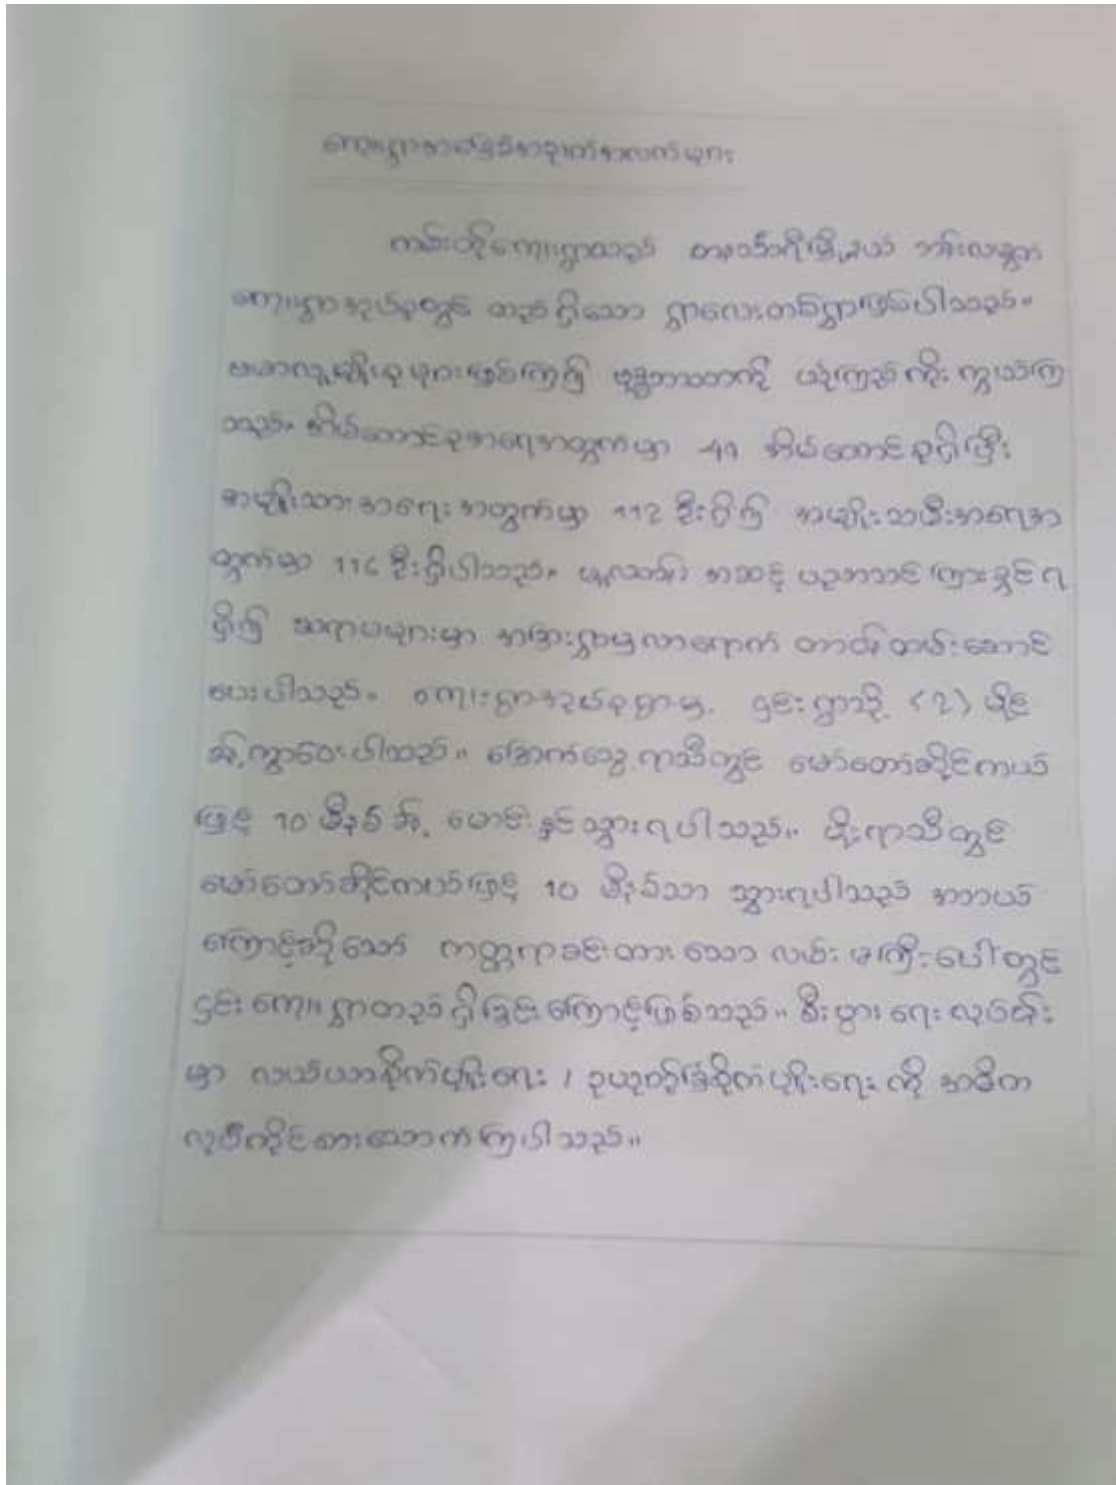 ကျေးရွာအခြေခံအချက်အလက်များ
ကမ်းတိုကျေးရွာသည် တနင်္သာရီမြို့နယ် ဘန်းလမွတ်
ကျေးရွာအုပ်စုတွင် တည်ရှိသော ရွာလေးတစ်ရွာဖြစ်ပါသည်။
ဗမာလူမျိုးစုများဖြစ်ကြ၍ ဗုဒ္ဓဘာသာကို ယုံကြည်ကိုးကွယ်ကြ
သည်။ အိမ်ထောင်စုအရေအတွက်မှာ 49 အိမ်ထောင်စုရှိပြီး
အမျိုးသားအရေးအတွက်မှာ 112 ဦးရှိ၍ အမျိုးသမီးအရေအ
တွက်မှာ 116 ဦးရှိပါသည်။ မူလတန်း အဆင့် ပညာသင်ကြားခွင့်ရ
ရှိ၍ ဆရာမများမှာ အခြားရွာမှလာရောက် တာဝန်ထမ်းဆောင်
ပေးပါသည်။ ကျေးရွာအုပ်စုရွာမှ ၄င်းရွာသို့ (2) မိုင်
ခန့်ကွာဝေးပါသည်။ ခြောက်သွေ့ရာသီတွင် မော်တော်ဆိုင်ကယ်
ဖြင့် 10 မိနစ်ခန့် မောင်းနှင်သွားရပါသည်။ မိုးရာသီတွင်
မော်တော်ဆိုင်ကယ်ဖြင့် 10 မိနစ်သာ သွားရပါသည် အဘယ်
ကြောင့်ဆိုသော် ကတ္တရာခင်းထားသော လမ်းမကြီးပေါ်တွင်
၄င်းကျေးရွာတည်ရှိခြင်းကြောင့်ဖြစ်သည်။ စီးပွားရေးလုပ်ငန်း
မှာ လယ်ယာစိုက်ပျိုးရေး / ဥယျာဉ်ခြံစိုက်ပျိုးရေးကို အဓိက
လုပ်ကိုင်စားသောက်ကြပါသည်။